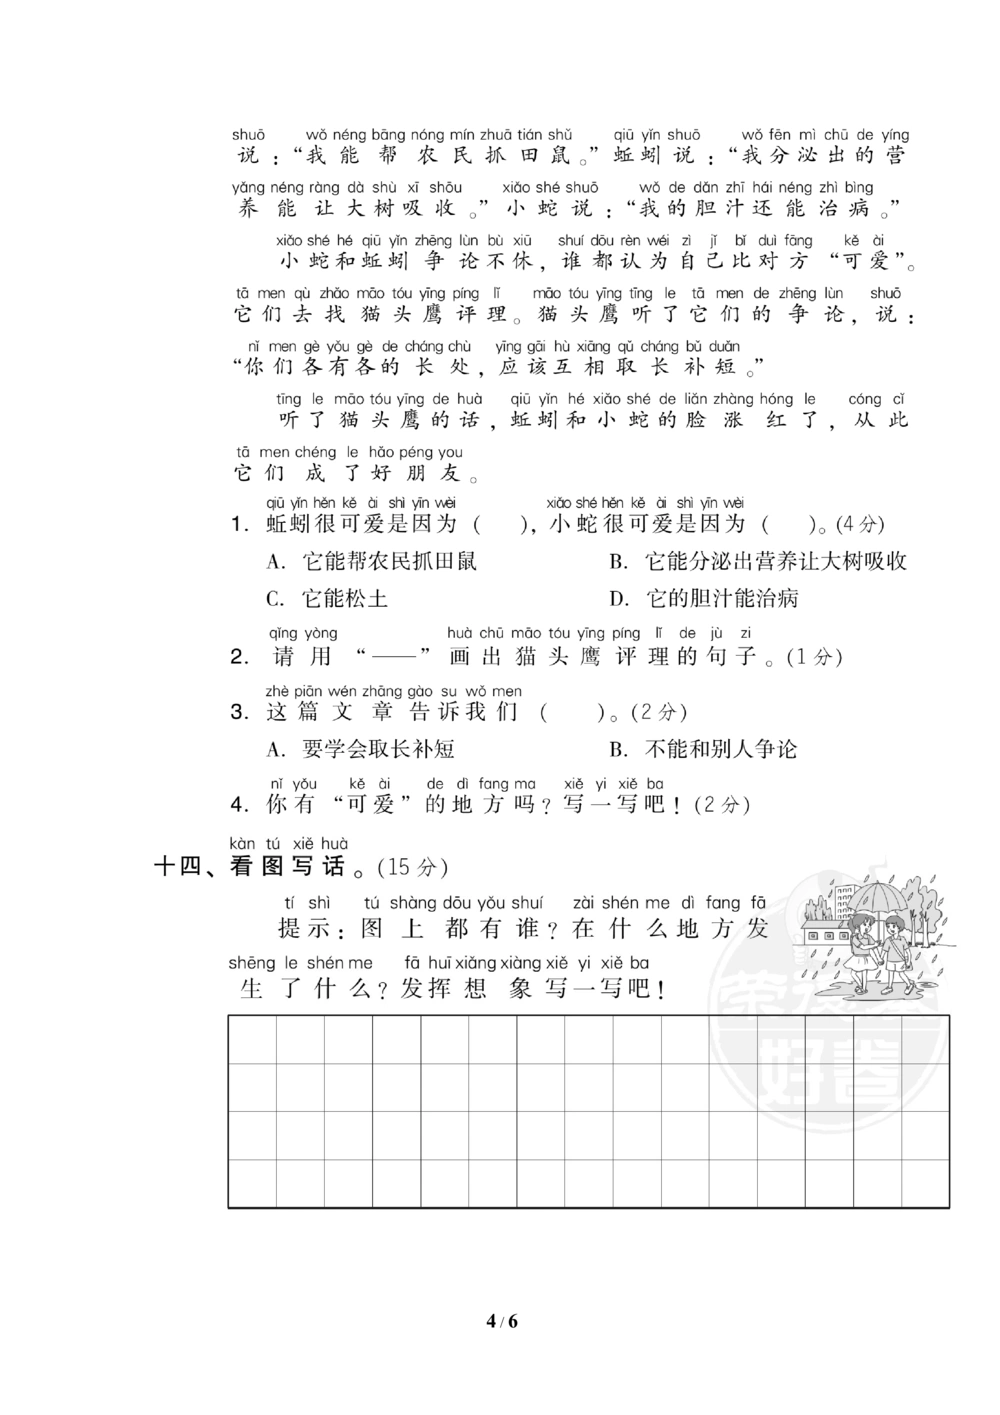 shuō wǒ néng bāng nóng mín zhuā tián shǔ qiū yǐn shuō wǒ fēn mì chū de yíng
说：“我能帮农民抓田鼠。”蚯蚓说：“我分泌出的营
yǎng néng ràng dà shù xī shōu xiǎo shé shuō wǒ de dǎn zhī hái néng zhì bìng
养能让大树吸收。”小蛇说：“我的胆汁还能治病。”
xiǎo shé hé qiū yǐn zhēng lùn bù xiū shuí dōu rèn wéi zì jǐ bǐ duì fāng kě ài
小蛇和蚯蚓争论不休，谁都认为自己比对方“可爱”。
tā men qù zhǎo māo tóu yīng píng lǐ māo tóu yīng tīng le tā men de zhēng lùn shuō
它们去找猫头鹰评理。猫头鹰听了它们的争论，说：
nǐ men gè yǒu gè de cháng chù yīng gāi hù xiāng qǔ cháng bǔ duǎn
“你们各有各的长处，应该互相取长补短。”
tīng le māo tóu yīng de huà qiū yǐn hé xiǎo shé de liǎn zhàng hóng le cóng cǐ
听了猫头鹰的话，蚯蚓和小蛇的脸涨红了，从此
tā men chéng le hǎo péng you
它们成了好朋友。
qiū yǐn hěn kě ài shì yīn wèi xiǎo shé hěn kě ài shì yīn wèi
1. 蚯蚓很可爱是因为（ ），小蛇很可爱是因为（ ）。(4分)
A. 它能帮农民抓田鼠 B. 它能分泌出营养让大树吸收
C. 它能松土 D. 它的胆汁能治病
qǐng yòng huà chū māo tóu yīng píng lǐ de jù zi
2. 请用“——”画出猫头鹰评理的句子。(1分)
zhè piān wén zhāng gào su wǒ men
3. 这篇文章告诉我们（ ）。(2分)
A. 要学会取长补短 B. 不能和别人争论
nǐ yǒu kě ài de dì fang ma xiě yi xiě ba
4. 你有“可爱”的地方吗？写一写吧！(2分)
kàn tú xiě huà
十四、看图写话。(15分)
tí shì tú shàng dōu yǒu shuí zài shén me dì fang fā
提示：图上都有谁？在什么地方发
shēng le shén me fā huī xiǎng xiàng xiě yi xiě ba
生了什么？发挥想象写一写吧！
荣德基
好卷
4 / 6